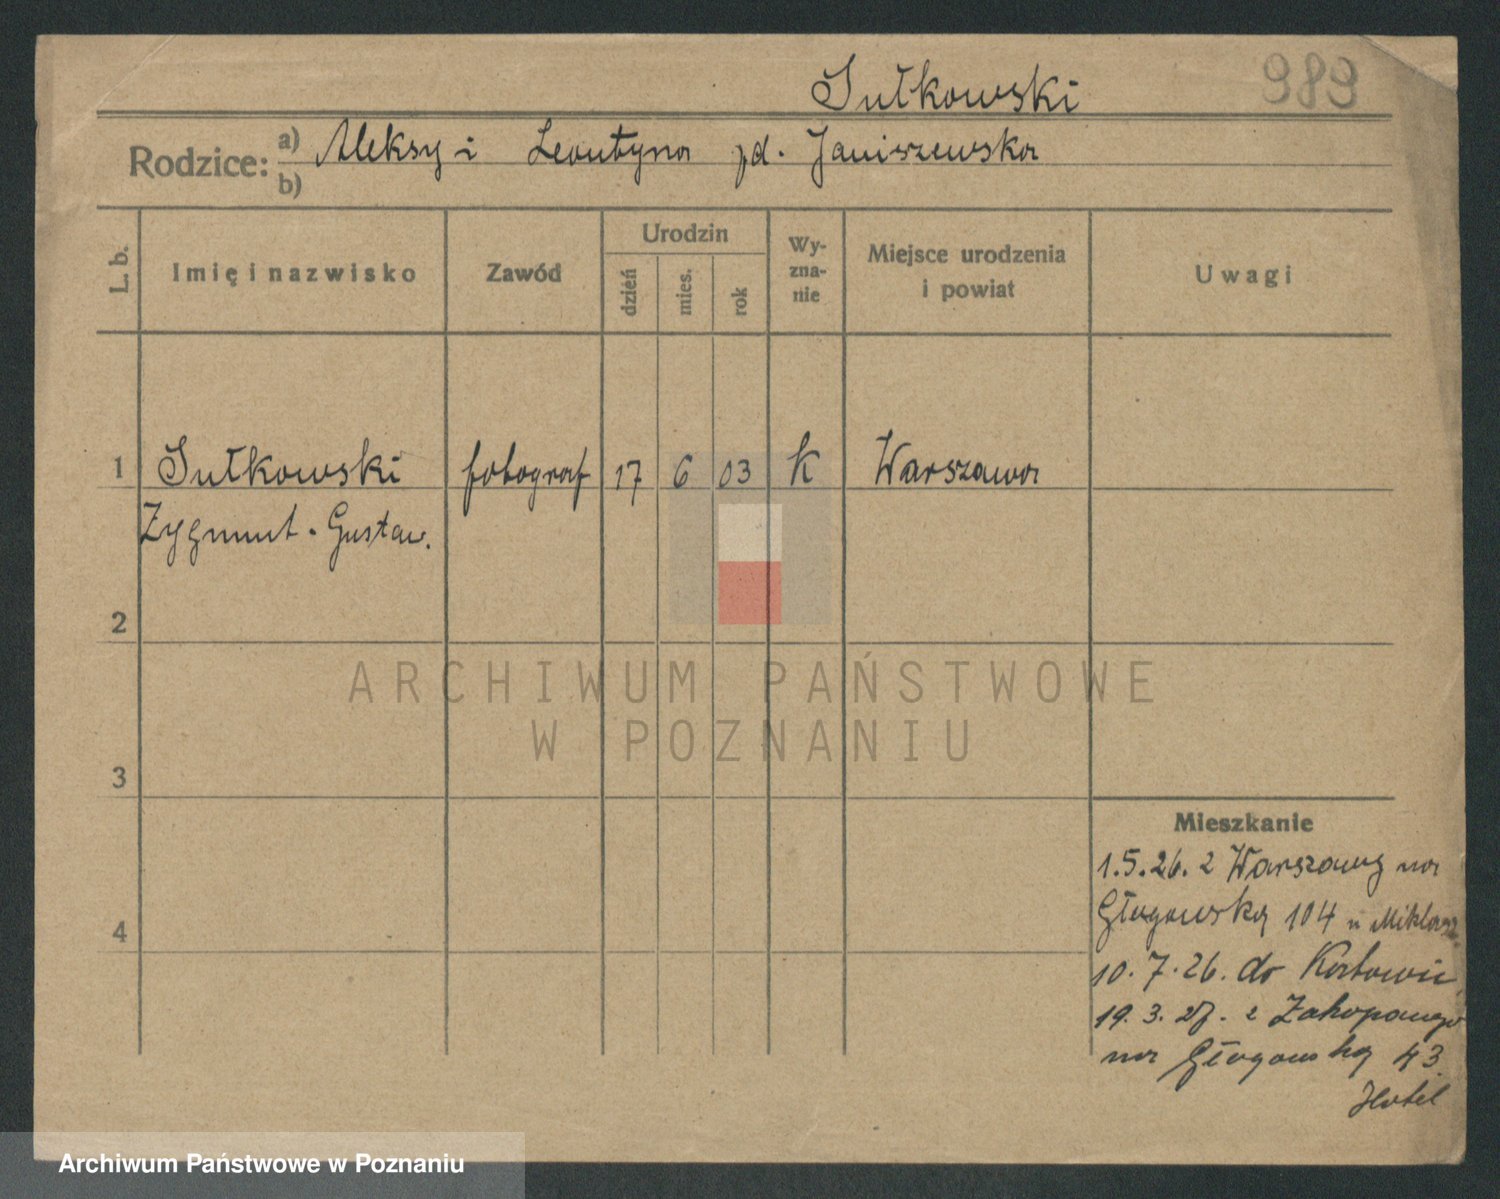 Sułkowski
989
Rodzice: a) Aleksy i Leontyna zd. Janiszewska
b)
L. b.
Imię i nazwisko
Zawód
Urodzin
dzień
mies.
rok
Wy-
zna-
nie
Miejsce urodzenia
i powiat
Uwagi
1 Sułkowski fotograf 17 6 03 K Warszawa
Zygmunt - Gustaw.
2
ARCHIWUM PAŃSTWOWE
W POZNANIU
3
Mieszkanie
1.5.26. z Warszawy na
Głogowską 104 u
4
10.7.26. do Katowic
19.3.27. z Zakopanego
na Głogowską 43
Hotel
Archiwum Państwowe w Poznaniu